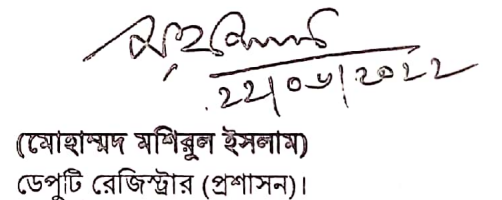 ২২|০৬|২০২২
(মোহাম্মদ মশিরুল ইসলাম)
ডেপুটি রেজিস্ট্রার (প্রশাসন)।